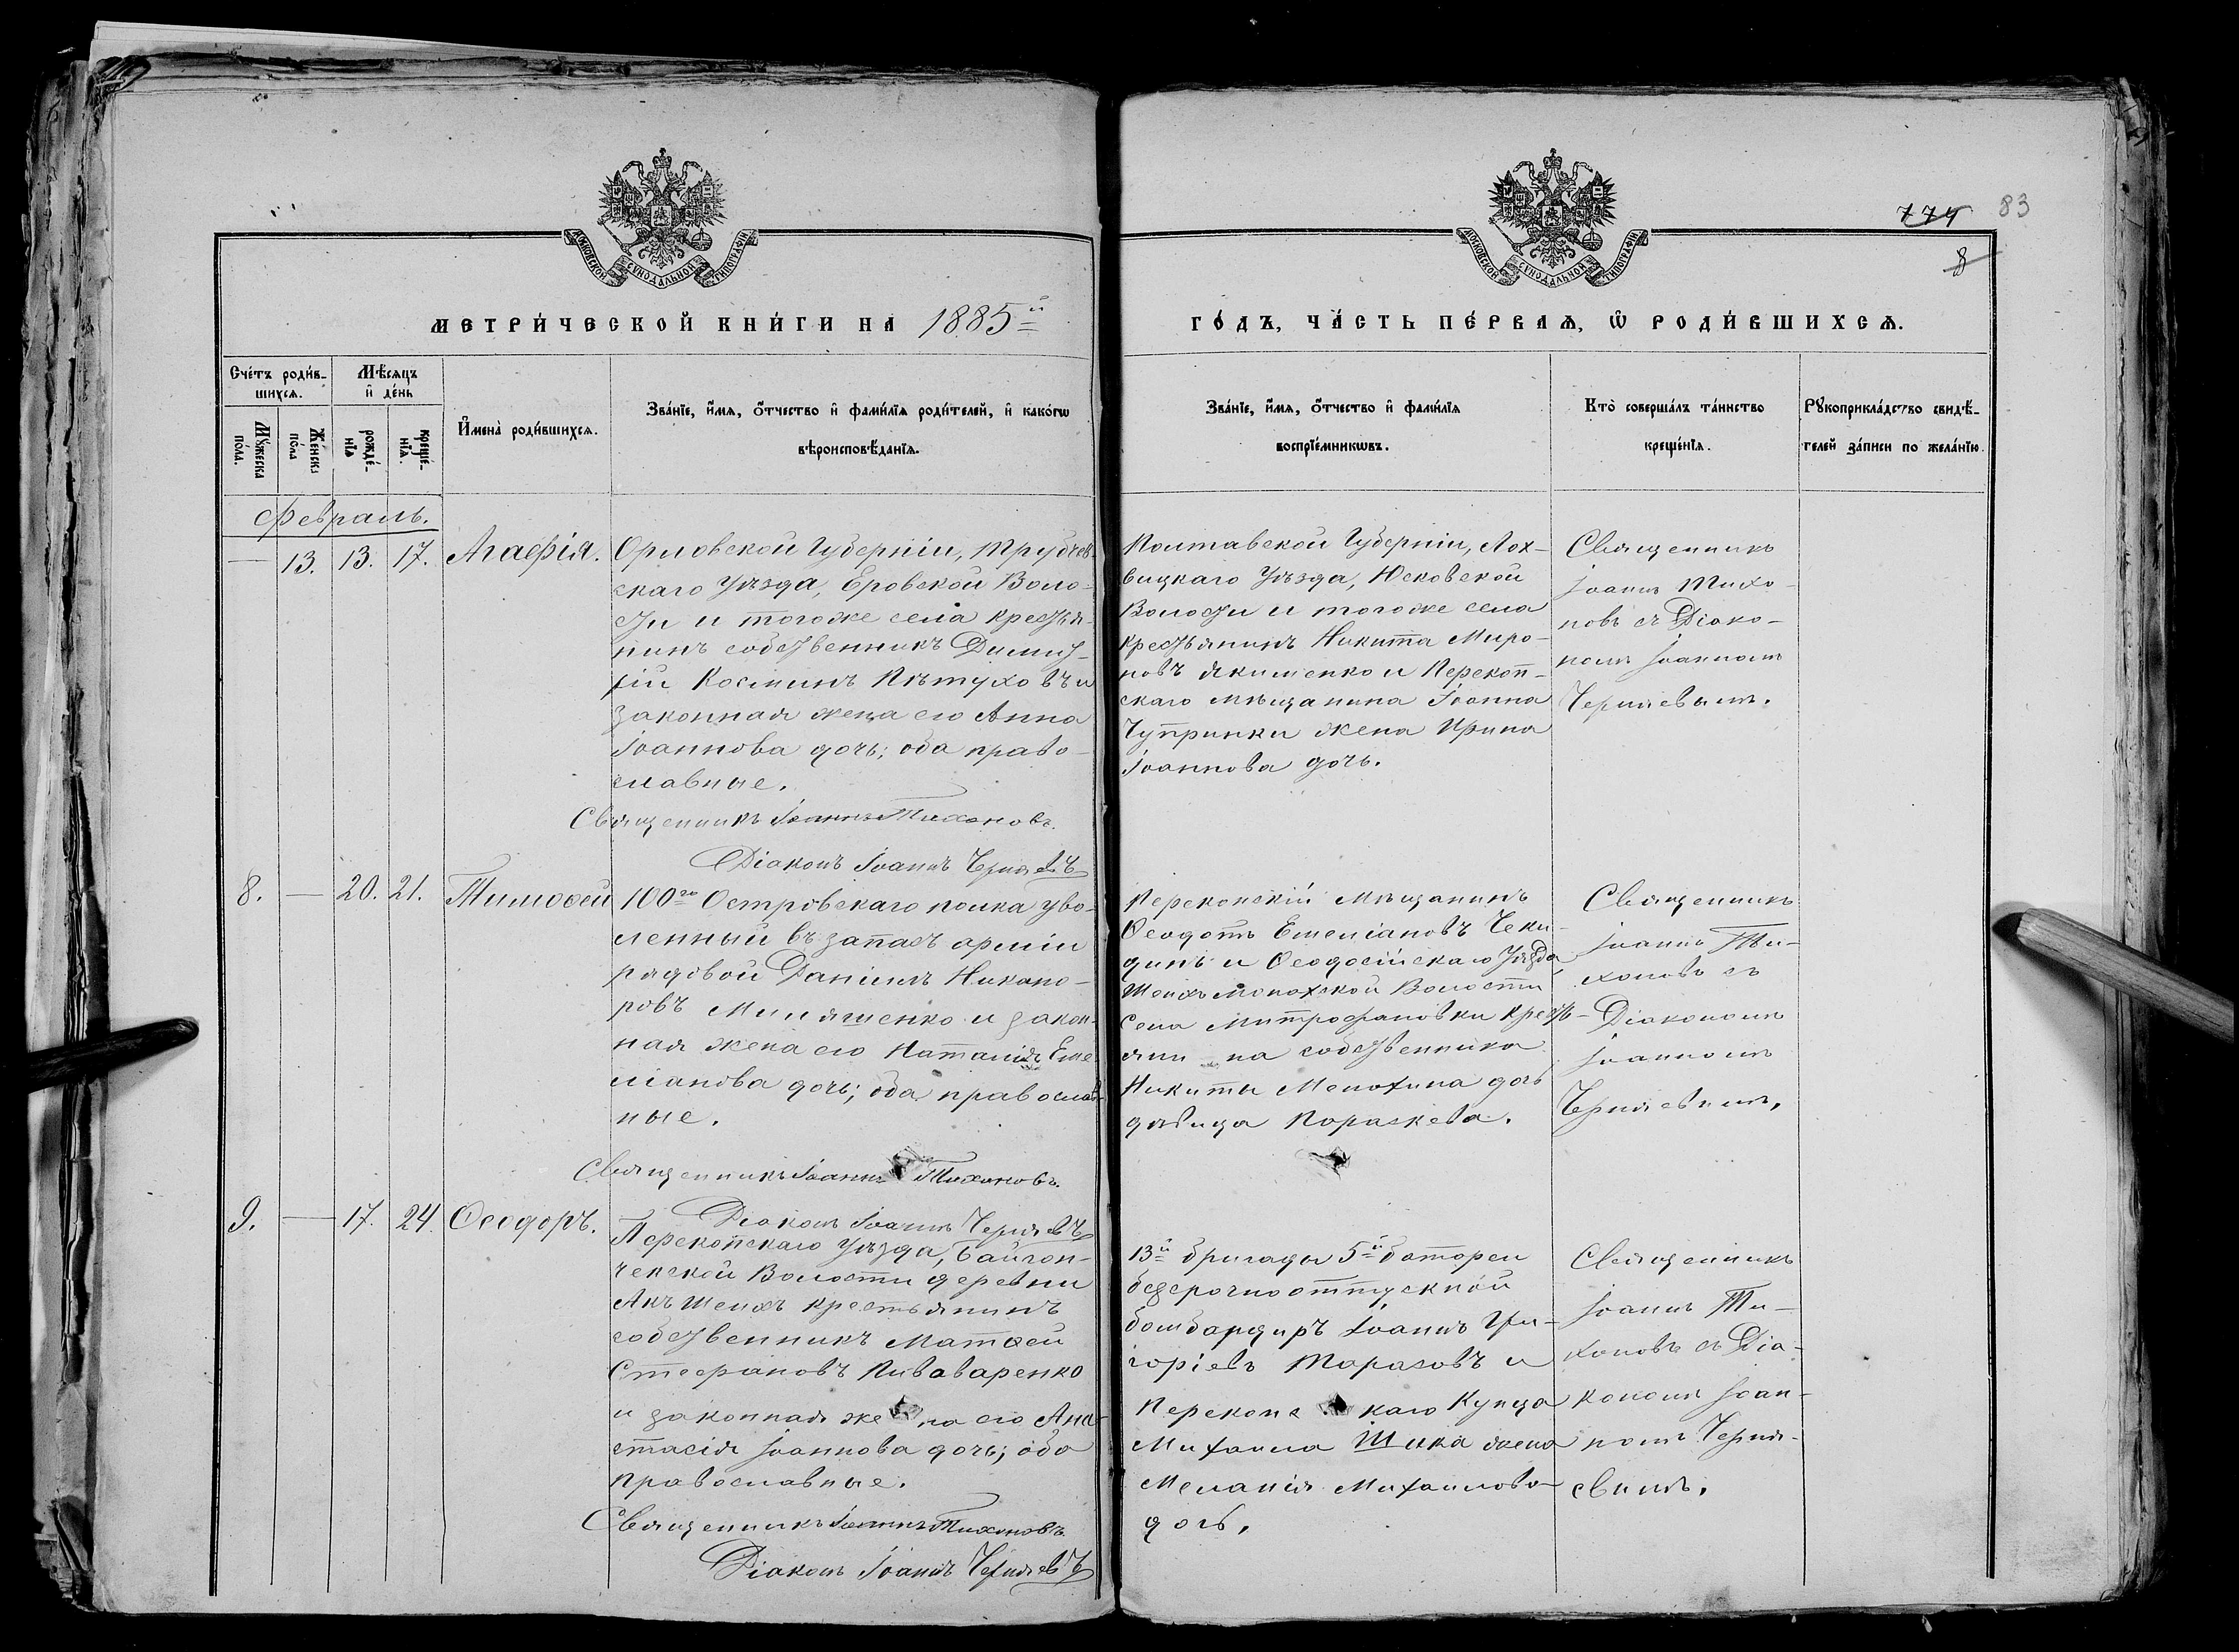 774 83
8
МОСКОВСКОЙ СѴНОДАЛЬНОЙ ТИПОГРАФІИ
МОСКОВСКОЙ СѴНОДАЛЬНОЙ ТИПОГРАФІИ
МЕТРИ́ЧЕСКОЙ КНИ́ГИ НА 1885й
ГО́ДЪ, ЧА́СТЬ ПЕ́РВАѦ, Ѡ РОДИ́ВШИХСѦ.
Сче́тъ роди́в-
шихсѧ.
Мѣ́сѧцъ
и҆ де́нь
Мꙋ́жеска
по́ла.
Же́нска
по́ла
рожде́-
нїѧ
креще́-
нїѧ.
И҆мена̀ роди́вшихсѧ.
Зва́нїе, и҆́мѧ, ѻ҆́тчество и҆ фами́лїѧ роди́телей, и҆ како́гѡ
вѣроисповѣ́данїѧ.
Зва́нїе, и҆́мѧ, ѻ҆́тчество и҆ фами́лїѧ
воспрїе́мникѡвъ.
Кто̀ соверша́лъ та́инство
креще́нїѧ.
Рꙋкоприкла́дство свидѣ́-
телей за́писи по жела́нїю.
Февраль.
— 13. 13. 17. Агафія.
Орловской Губерніи, Трубчев-
скаго Уѣзда, Еровской Воло-
сти и тогоже села крестья-
нинъ собственникъ Димит-
рій Косминъ Пѣтуховъ и
законная жена его Анна
Іоаннова дочь; оба право-
славные.
Священникъ Іоаннъ Тихоновъ.
Діаконъ Іоаннъ Черняевъ
Полтавской Губерніи, Лох-
вицкаго Уѣзда, Юсковской
Волости и тогоже села
крестьянинъ Никита Миро-
новъ Якименко и Перекоп-
скаго мѣщанина Іоанна
Чупринки жена Ирина
Іоаннова дочь.
Священникъ
Іоаннъ Тихо-
новъ съ Діако-
номъ Іоанномъ
Черняевымъ.
8. — 20. 21. Тимоѳей
100го Островскаго полка уво-
ленный въ запасъ арміи
рядовой Даніилъ Никано-
ровъ Миляшенко и закон-
ная жена его Наталія Еме-
ліанова дочь; оба православ-
ные.
Священникъ Іоаннъ Тихоновъ.
Діаконъ Іоаннъ Черняевъ
Перекопскій мѣщанинъ
Ѳеодотъ Емеліановъ Чеки-
динъ и Ѳеодосійскаго Уѣзда
Шейхъ Монахской Волости
села Митрофановки кресть-
яни на собственника
Никиты Мелохина дочь
дѣвица Параскева.
Священникъ
Іоаннъ Ти-
хоновъ съ
Діакономъ
Іоанномъ
Черняевымъ.
9. — 17. 24. Ѳеодоръ.
Перекопскаго Уѣзда, Байгон-
чекской Волости деревни
Акъ Шеихъ крестьянинъ
собственникъ Матѳей
Стефановъ Пивоваренко
и законная же на его Ана-
стасія Іоаннова дочь; оба
православные.
Священникъ Іоаннъ Тихоновъ
Діаконъ Іоаннъ Черняевъ
13й бригады 5й батареи
безсрочноотпускной
бомбардиръ Іоаннъ Гри-
горіевъ Тарасовъ и
Перекопс каго Купца
Михаила Шика жена
Меланія Михаилова
дочь.
Священникъ
Іоаннъ Ти-
хоновъ съ Діа-
кономъ Іоан-
номъ Черня-
евымъ.